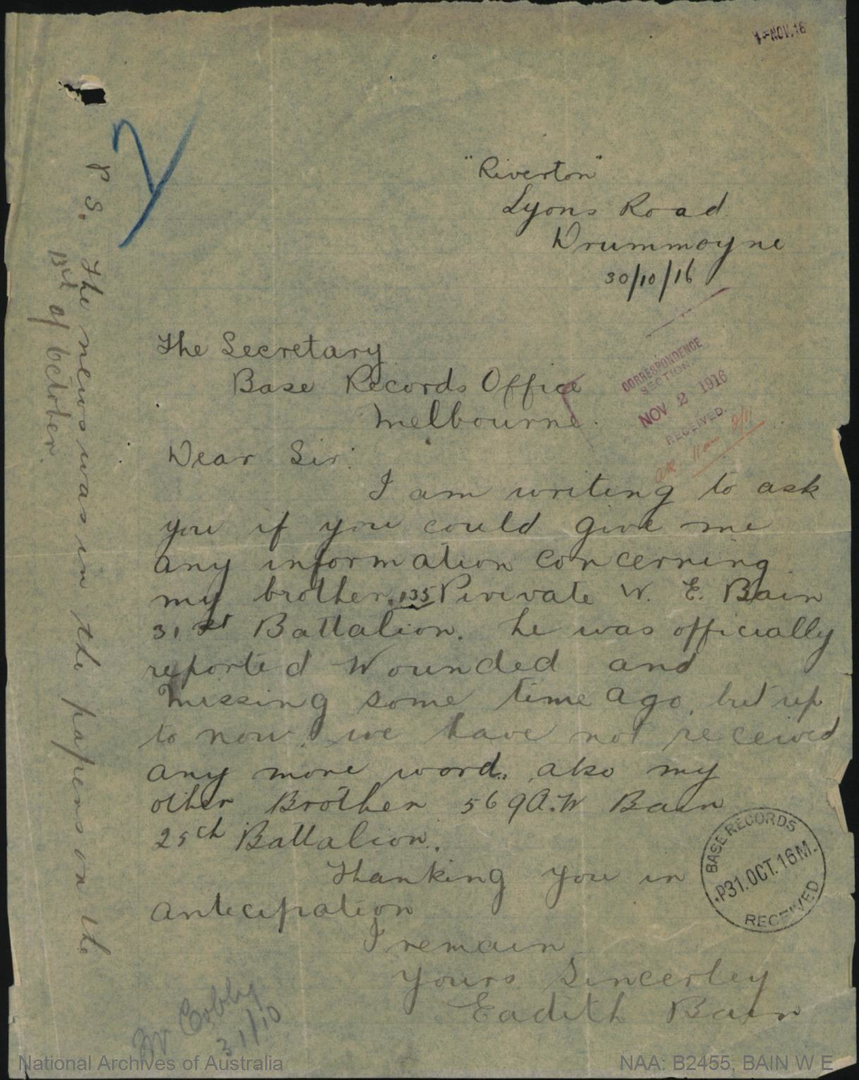 1-NOV.16
"Riverton"
Lyons Road
Drummoyne
30/10/16
The Secretary
Base Records Office
Melbourne.
CORRESPONDENCE
SECTION
NOV 2 1916
RECEIVED.
Dear Sir.
I am writing to ask
you if you could give me
any information concerning
my brother, 135 Pivivate W. E. Bain
31st Battalion. he was officially
reported Wounded and
missing some time ago, but up
to now, we have not received
any more word, also my
other Brother 569 A.W Bain
25th Battalion.
Thanking you in
Antecipation
I remain
Yours Sincerley
Eadith Bain
BASE RECORDS
P31.OCT.16M.
RECEIVED
P.S. The news was in the papers on the
of October.
Mr Cobby
31/10
National Archives of Australia
NAA: B2455, BAIN W E